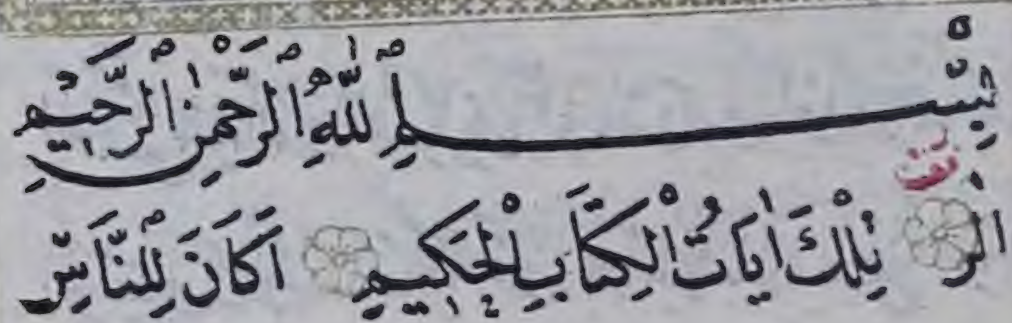 بِسْمِ اللّٰهِ الرَّحْمٰنِ الرَّحِيمِ
الٓرٰ تِلْكَ اٰيَاتُ الْكِتَابِ الْحَكِيمِ اَكَانَ لِلنَّاسِ